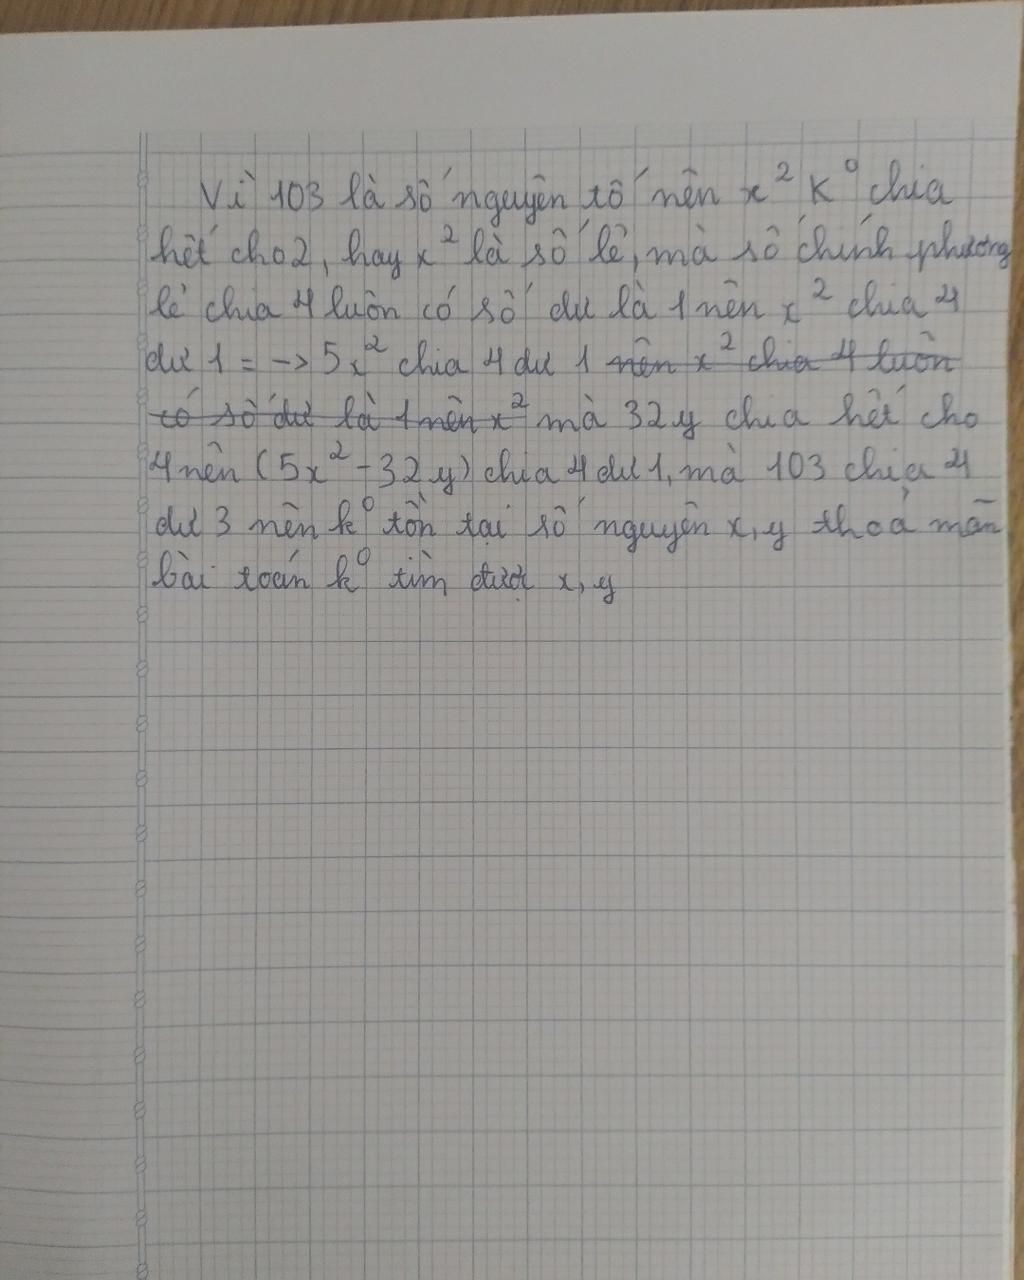 Vì 103 là số nguyên tố nên x² k⁰ chia
hết cho 2, hay x² là số lẻ, mà số chính phương
lẻ chia 4 luôn có số dư là 1 nên x² chia 4
dư 1 = -> 5x² chia 4 dư 1 nên x² chia 4 luôn
có số dư là 1 nên x² mà 32y chia hết cho
4 nên (5x² - 32y) chia 4 dư 1, mà 103 chia 4
dư 3 nên k⁰ tồn tại số nguyên x, y thoả mãn
bài toán k⁰ tìm được x, y